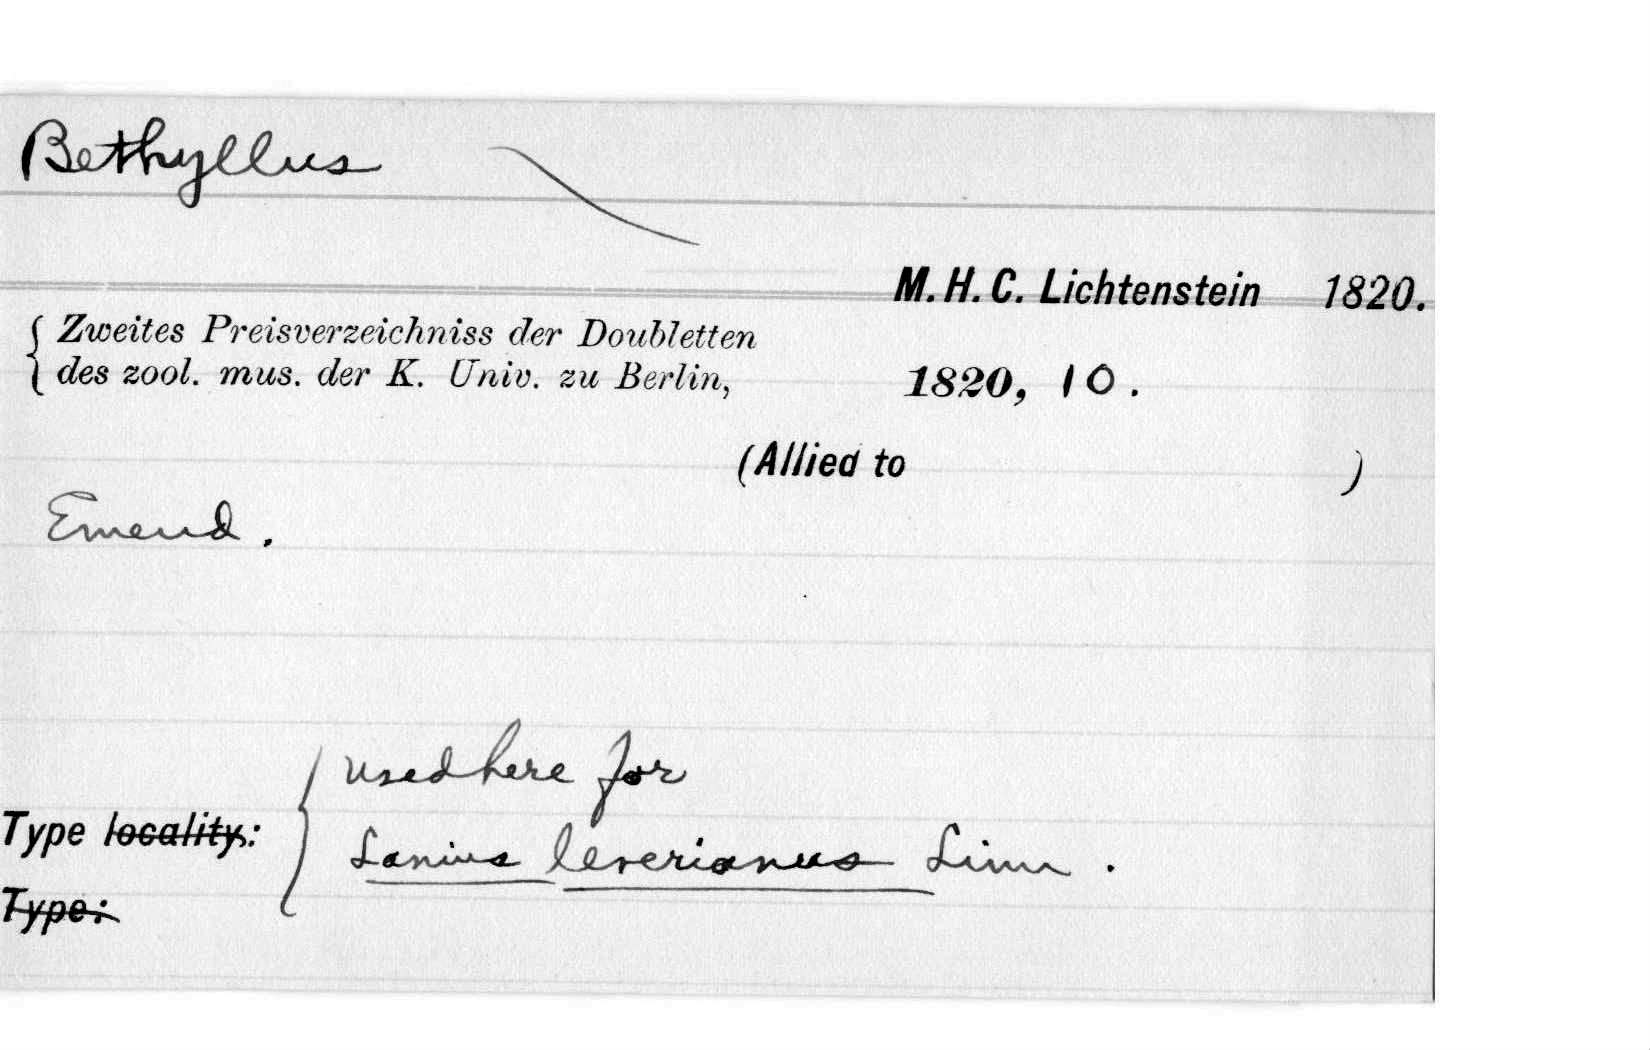 Bethyllus
M. H. C. Lichtenstein 1820.
Zweites Preisverzeichniss der Doubletten
des zool. mus. der K. Univ. zu Berlin, 1820, 10.
(Allied to )
Emend.
used here for
Type locality:
Lanius leverianus Linn.
Type: